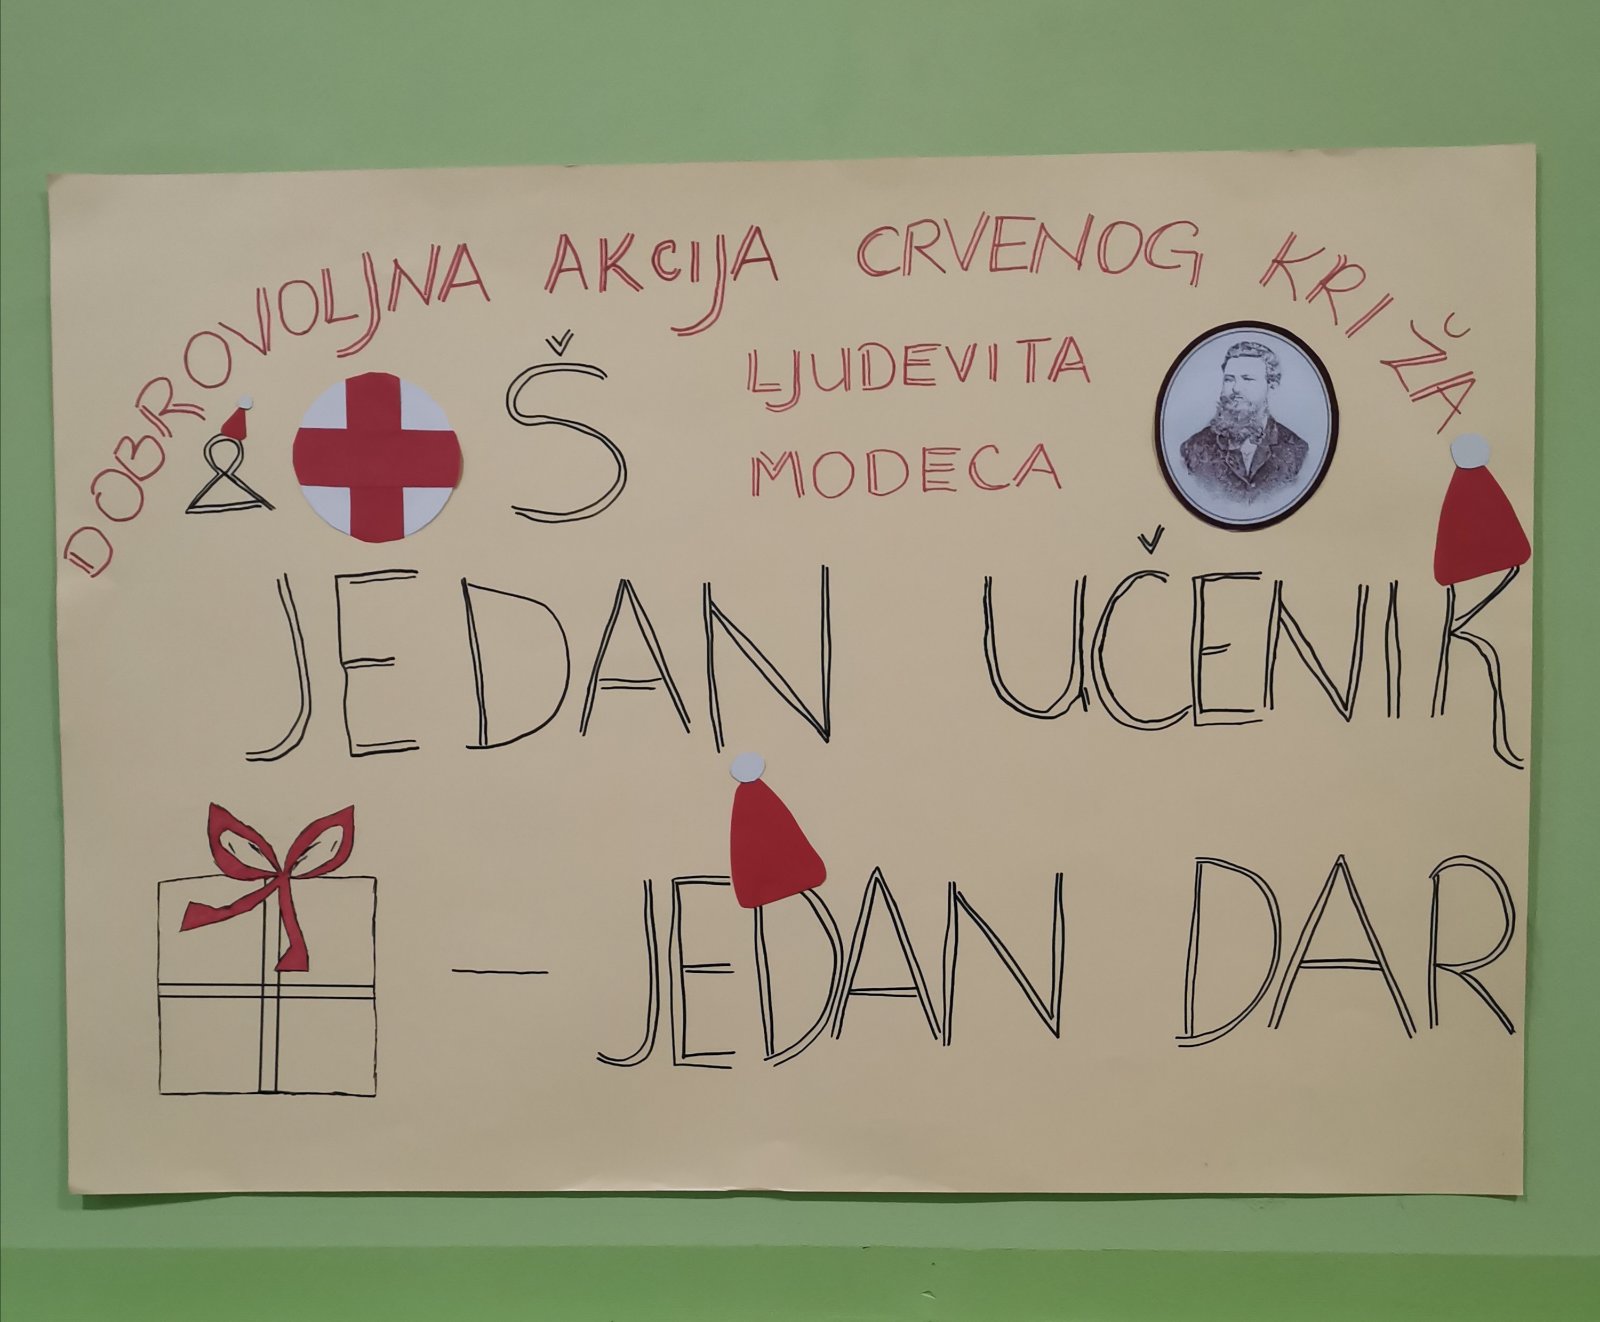 DOBROVOLJNA AKCIJA CRVENOG KRIŽA
& Š LJUDEVITA
MODECA
JEDAN UČENIK
— JEDAN DAR